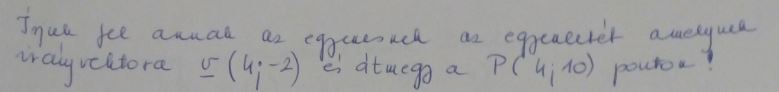 Írjuk fel annak az egyenesnek az egyenletét amelynek
irányvektora v (4;-2) és átmegy a P(4;10) ponton!